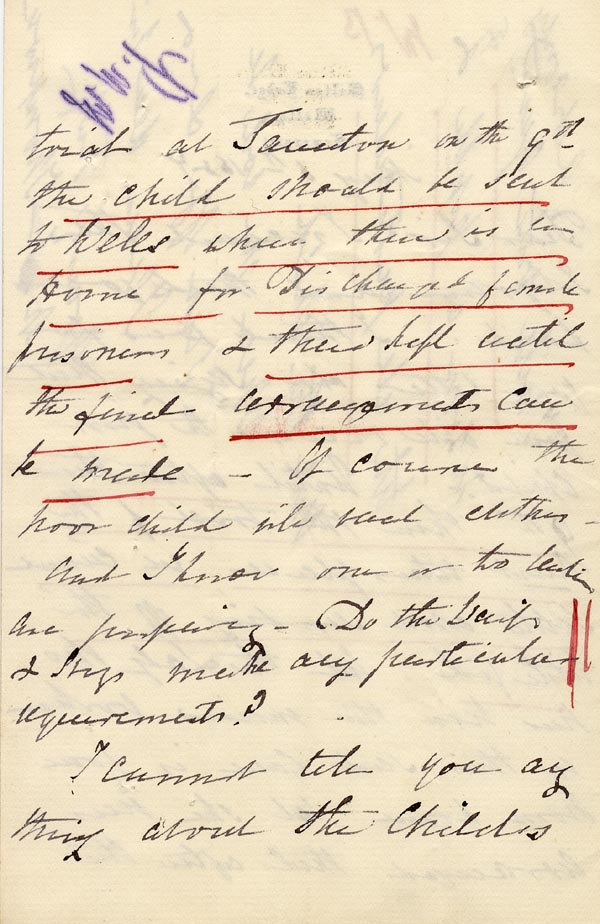 trial at Taunton on the 9th
the child should be sent
to Wells where there is a
Home for Discharged female
prisoners & there left until
the final arrangements can
be made – Of course the
poor child will need clothes –
and I know one or two ladies
are preparing – Do the Waifs
& Strays make any particular
requirements?
I cannot tell you any
thing about the Childs